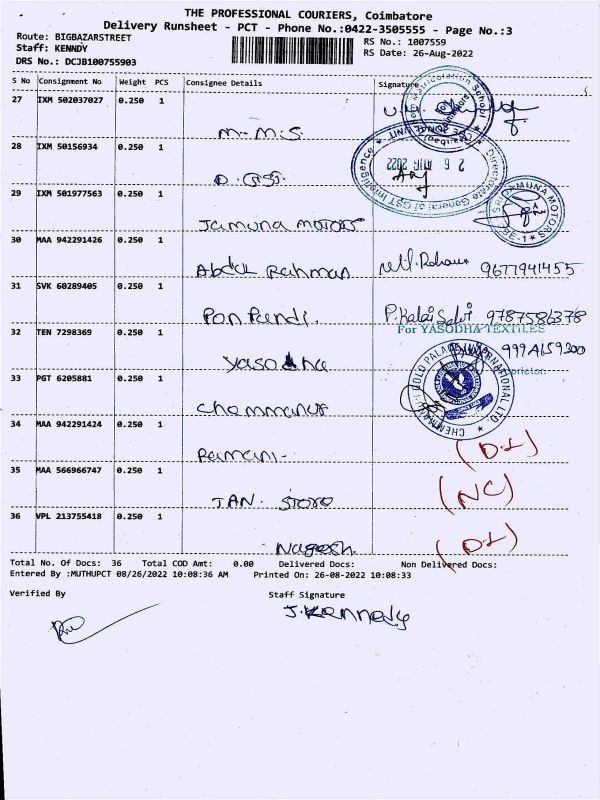 THE PROFESSIONAL COURIERS, Coimbatore
Delivery Runsheet - PCT - Phone No.:0422-3505555 - Page No.:3
Route: BIGBAZARSTREET
RS No.: 1007559
Staff: KENNDY
RS Date: 26-Aug-2022
DRS No.: DCJB100755903
S No Consignment No Weight PCS Consignee Details Signature
27 IXM 502037027 0.250 1
M-M.S
28 IXM 50156934 0.250 1
D.GST.
Directorate General of GST Intelligence
26 AUG 2022
29 IXM 501977563 0.250 1
Jamuna MOTORS
SRI JAMUNA MOTORS
30 MAA 942291426 0.250 1
Abdul Rahman 9677941455
31 SVK 60289405 0.250 1
Pon Pandi. P.Kalai Selvi 9787586378
For YASODHA TEXTILES
32 TEN 7298369 0.250 1
Yasodha
Proprietor
33 PGT 6205881 0.250 1
Chemmanur
GOLD PALACE INTERNATIONAL LTD
34 MAA 942291424 0.250 1
Ramani- (D.L)
35 MAA 566966747 0.250 1
JAN. Store (NC)
36 VPL 213755418 0.250 1
Nagesh. (D.L)
Total No. Of Docs: 36 Total COD Amt: 0.00 Delivered Docs: Non Delivered Docs:
Entered By :MUTHUPCT 08/26/2022 10:08:36 AM Printed On: 26-08-2022 10:08:33
Verified By Staff Signature
J.Kennedy